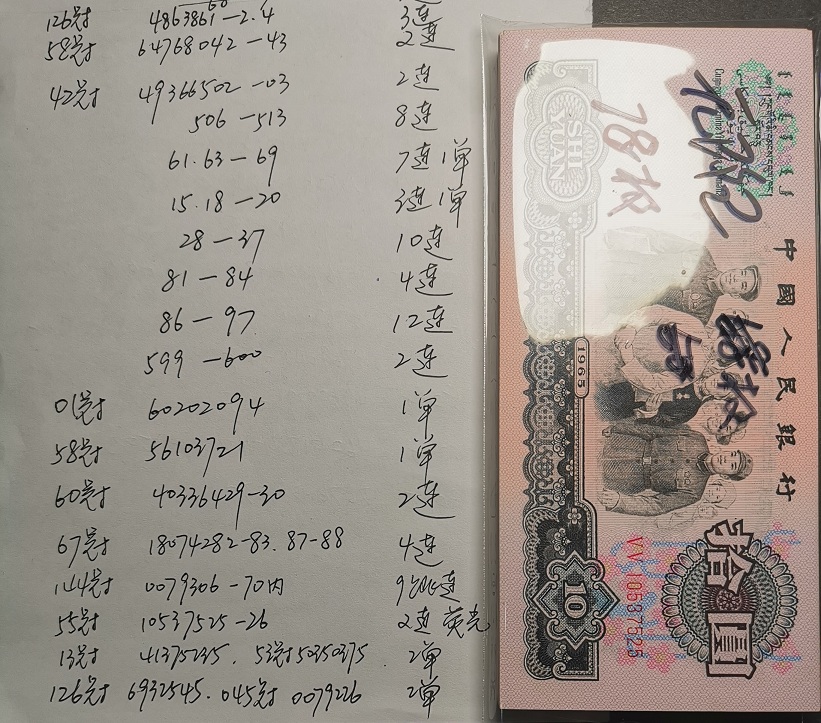 60
126封 4863861-2.4 3连
58封 64768042-43 2连
42封 49366502-03 2连
506-513 8连
61.63-69 7连1单
15.18-20 3连1单
28-37 10连
81-84 4连
86-97 12连
599-600 2连
01封 60202094 1单
58封 56103721 1单
60封 40336429-30 2连
67封 18074282-83.87-88 4连
144封 0079306-70内 9
55封 10537525-26 2连 荧光
13封 41375235. 53封50350375 2单
126封 6932545.045封 0079226 2单
78枚
SHI YUAN
中國人民銀行
1965
拾圓
VV 10537525
10